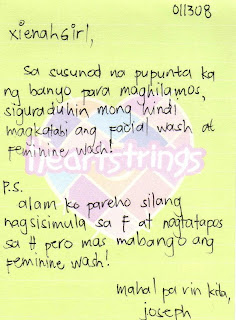 011308
xienahGirl,
sa susunod na pupunta ka
ng banyo para maghilamos,
siguraduhin mong hindi
magkatabi ang facial wash at
feminine wash!
heartstrings
P.S.
alam ko pareho silang
nagsisimula sa F at nagtatapos
sa H pero mas mabango ang
feminine wash!
mahal pa rin kita,
joseph